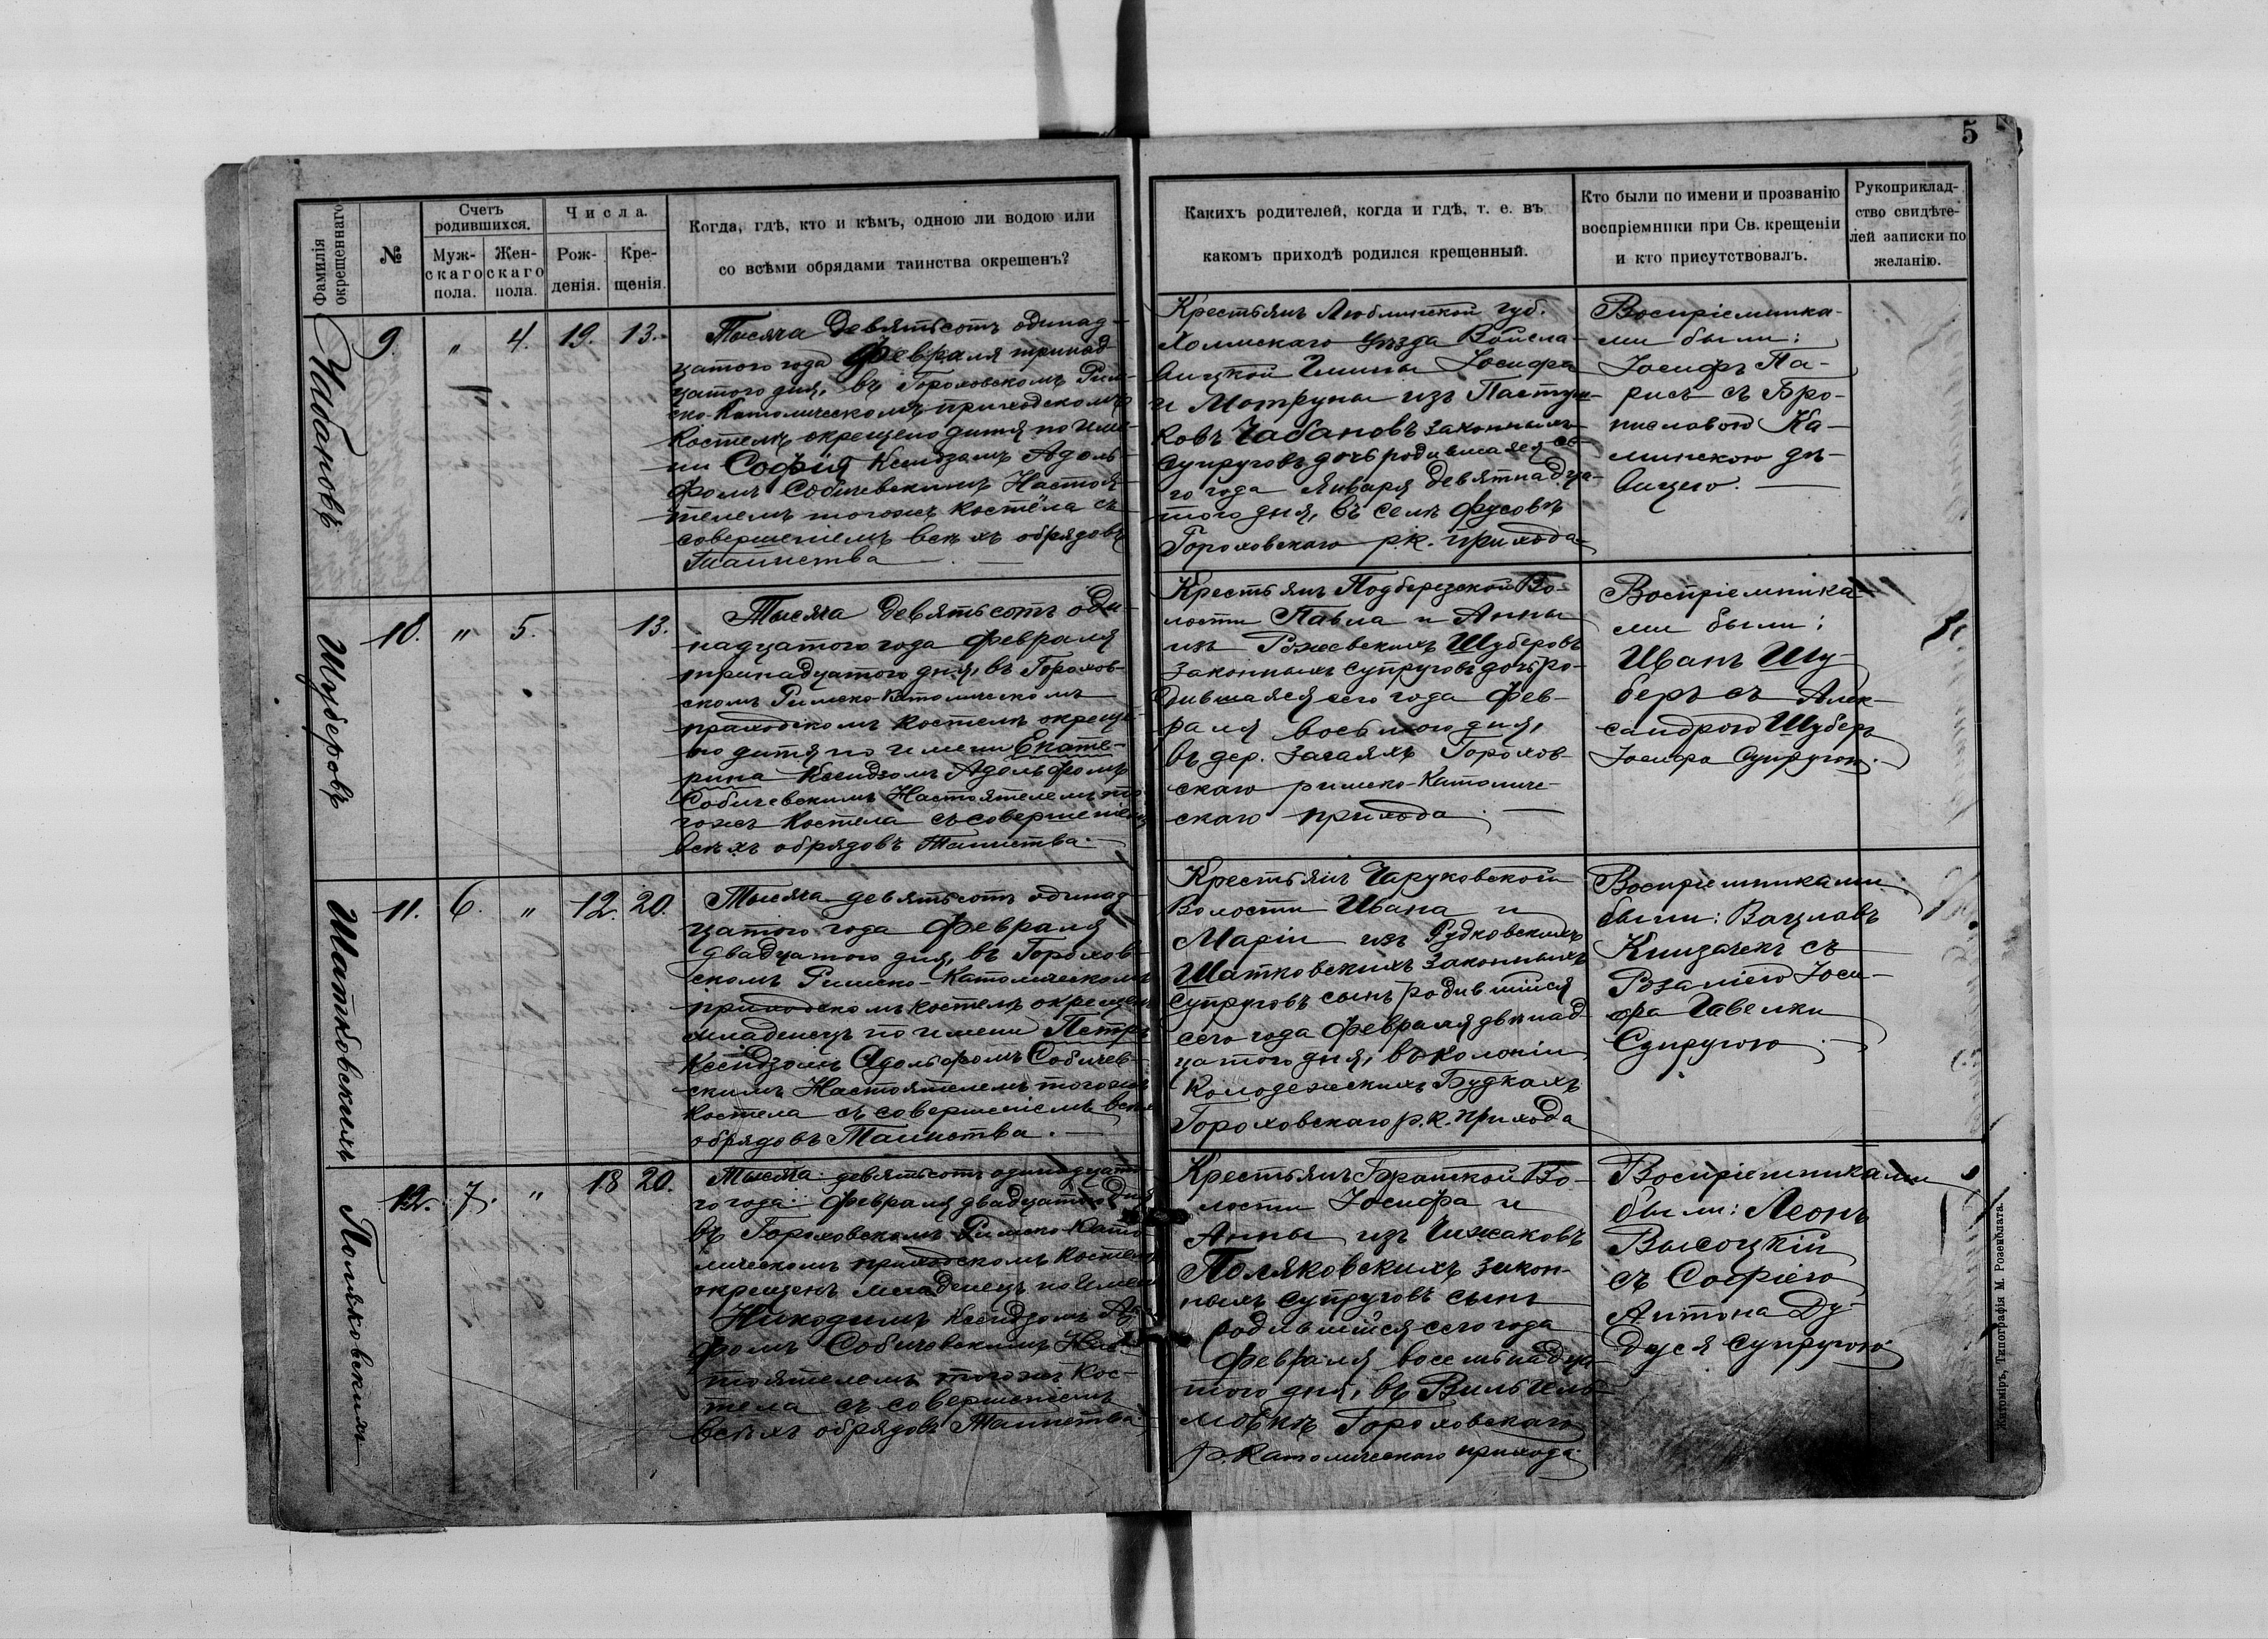 5
Фамилія
окрещеннаго
№
Счетъ
родившихся.
Муж-
скаго
пола.
Жен-
скаго
пола.
Числа.
Рож-
денія.
Кре-
щенія.
Когда, гдѣ, кто и кѣмъ, одною ли водою или
со всѣми обрядами таинства окрещенъ?
Какихъ родителей, когда и гдѣ, т. е. въ
какомъ приходѣ родился крещенный.
Кто были по имени и прозванію
воспріемники при Св. крещеніи
и кто присутствовалъ.
Рукоприклад-
ство свидѣте-
лей записки по
желанію.
Чабановъ
9. " 4. 19. 13.
Тысяча девятьсотъ одинад-
цатого года Февраля тринад-
цатого дня, въ Гороховскомъ Рим-
ско-Католическомъ приходскомъ
костелѣ окрещено дитя по име-
ни Софія Ксендзомъ Адоль-
фомъ Собичевскимъ Настоя-
телемъ тогожъ костёла съ
совершеніемъ всѣхъ обрядовъ
Таинства
Крестьянъ Люблинской губ.
Холмскаго Уѣзда Войсла-
вицкой Гмины Іосифа
и Мотруны изъ Пастух-
ковъ Чабановъ законныхъ
супруговъ дочь родившаяся се
го года Января девятнадца-
того дня, въ селѣ Фусовѣ
Гороховскаго р.к. прихода
Воспріемника-
ми были:
Іосифъ Па-
рисъ съ Бро-
ниславою Ка-
минскою дѣ-
вицею.
Шуберовъ
10. " 5. 13.
Тысяча девятьсотъ оди-
надцатого года Февраля
тринадцатого дня, въ Горохов-
скомъ Римско-Католическомъ
приходскомъ костелѣ окреще-
но дитя по имени Екате-
рина Ксендзомъ Адольфомъ
Собичевскимъ Настоятелемъ то
гожъ костела съ совершеніемъ
всѣхъ обрядовъ Таинства.
Крестьянъ Подберезской Во-
лости Павла и Анны
изъ Рожевскихъ Шуберовъ
законныхъ супруговъ дочь ро-
дившаяся сего года Фев-
раля восьмого дня,
въ дер. Загаяхъ Горохов-
скаго римско-Католиче-
скаго прихода.
Воспріемника-
ми были:
Иванъ Шу-
беръ съ Алек-
сандрою Шуберъ
Іосифа Супругою.
Шатковскихъ
11. 6. " 12. 20.
Тысяча девятьсотъ одинад-
цатого года Февраля
двадцатого дня, въ Горохов-
скомъ Римско-Католическомъ
приходскомъ костелѣ окрещенъ
младенецъ по имени Петръ
Ксендзомъ Адольфомъ Собичев-
скимъ Настоятелемъ тогожъ
костела съ совершеніемъ всѣхъ
обрядовъ Таинства.
Крестьянъ Чаруковской
Волости Ивана и
Маріи изъ Рудковскихъ
Шатковскихъ законныхъ
супруговъ сынъ родившійся
сего года Февраля двѣнад
цатого дня, въ колоніи
Колодежскихъ Будкахъ
Гороховскаго р.к. прихода
Воспріемниками
были: Вацлавъ
съ
Розаліею Іоси-
фа Гавелки
Супругою.
Поляковскихъ
12. 7. " 18 20.
Тысяча девятьсотъ одинадцато
го года Февраля двадцатого дня
въ Гороховскомъ Римско-Като
лическомъ приходскомъ костелѣ
окрещенъ младенецъ по имени
Никодимъ Ксендзомъ Адоль
фомъ Собичевскимъ Нас-
тоятелемъ тогожъ Кос-
тела съ совершеніемъ
всѣхъ обрядовъ Таинства.
Крестьянъ Боратской Во-
лости Іосифа и
Анны изъ Чижаковъ
Поляковскихъ закон-
ныхъ супруговъ сынъ
родившійся сего года
Февраля восемьнадца
того дня, въ Вильгель-
мовкѣ Гороховскаго
р. Католическаго прихода.
Воспріемниками
были: Леонъ
Высоцкій
съ Софіею
Антона Ду-
дуся супругою
Житоміръ, Типографія М. Розенблата.